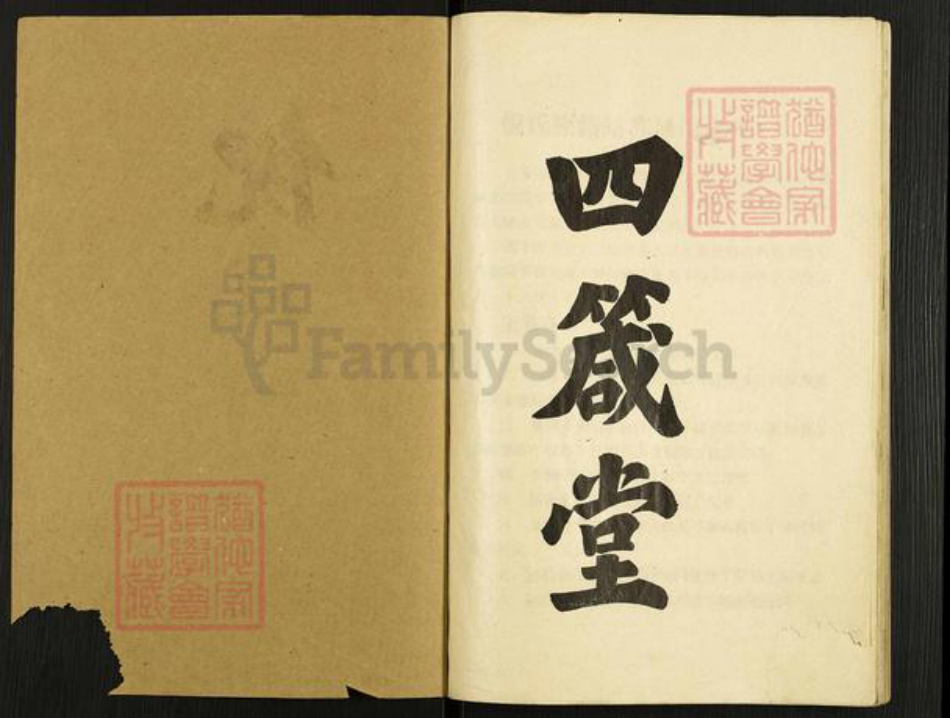 四箴堂
猶他家
譜學會
收藏
FamilySearch
猶他家
譜學會
收藏